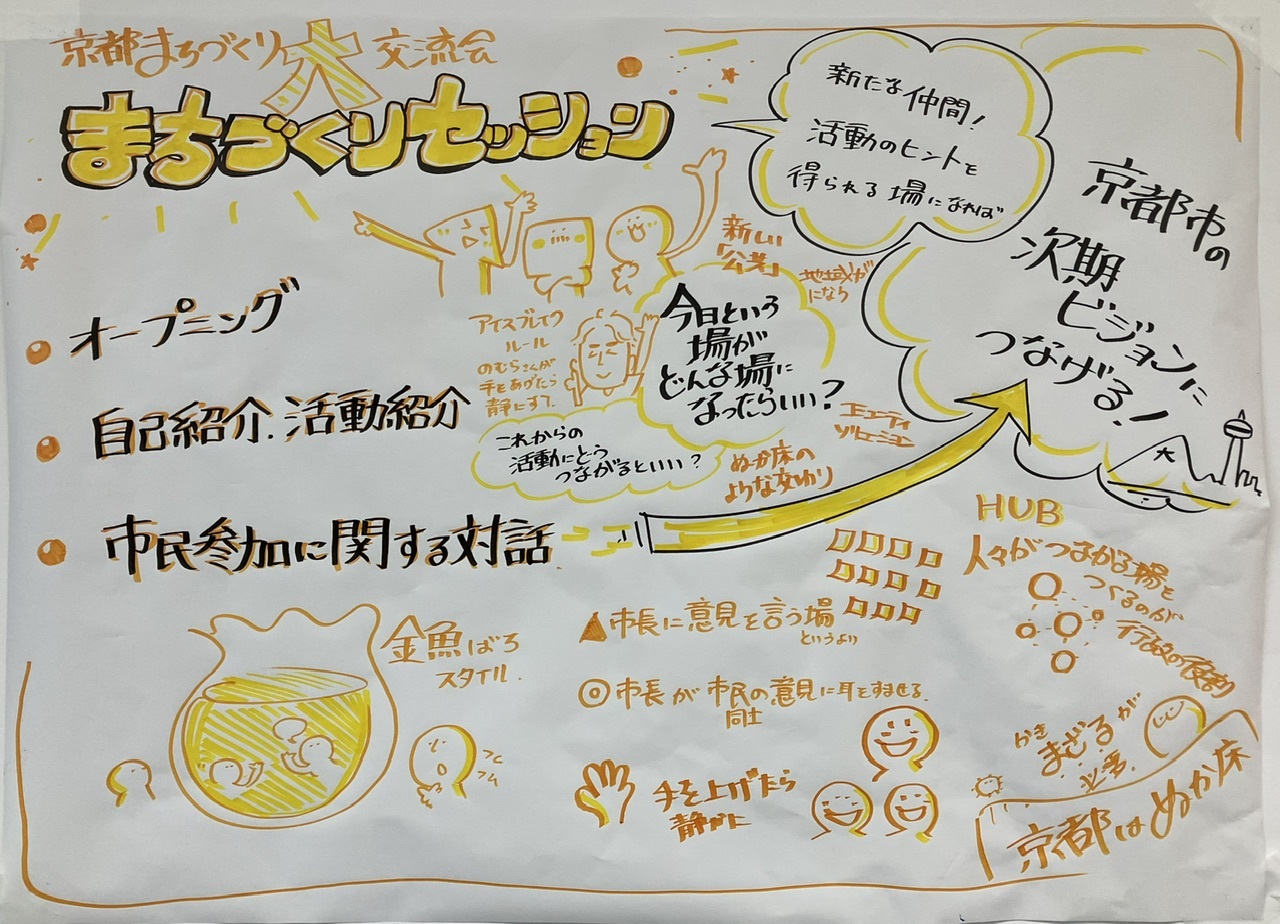 京都まちづくり大交流会
まちづくりセッション
オープニング
自己紹介.活動紹介
市民参加に関する対話
アイスブレイク
ルール
のむらさんが
手をあげたら
静にする。
新しい
「公共」
地域が
になう
今日という
場が
どんな場に
なったらいい?
これからの
活動にどう
つながるといい?
ぬか床の
ような交わり
新たな仲間!
活動のヒントを
得られる場になれば
京都市の
次期
ビジョンに
つなげる!
大
HUB
人々がつながる場を
つくるのが
行政の役割
金魚ばち
スタイル.
フム
▲市長に意見を言う場
というより
◎市長が市民の意見に耳をすませる.
同士
手を上げたら
静かに
かき
まぜるが
必要.
京都はぬか床